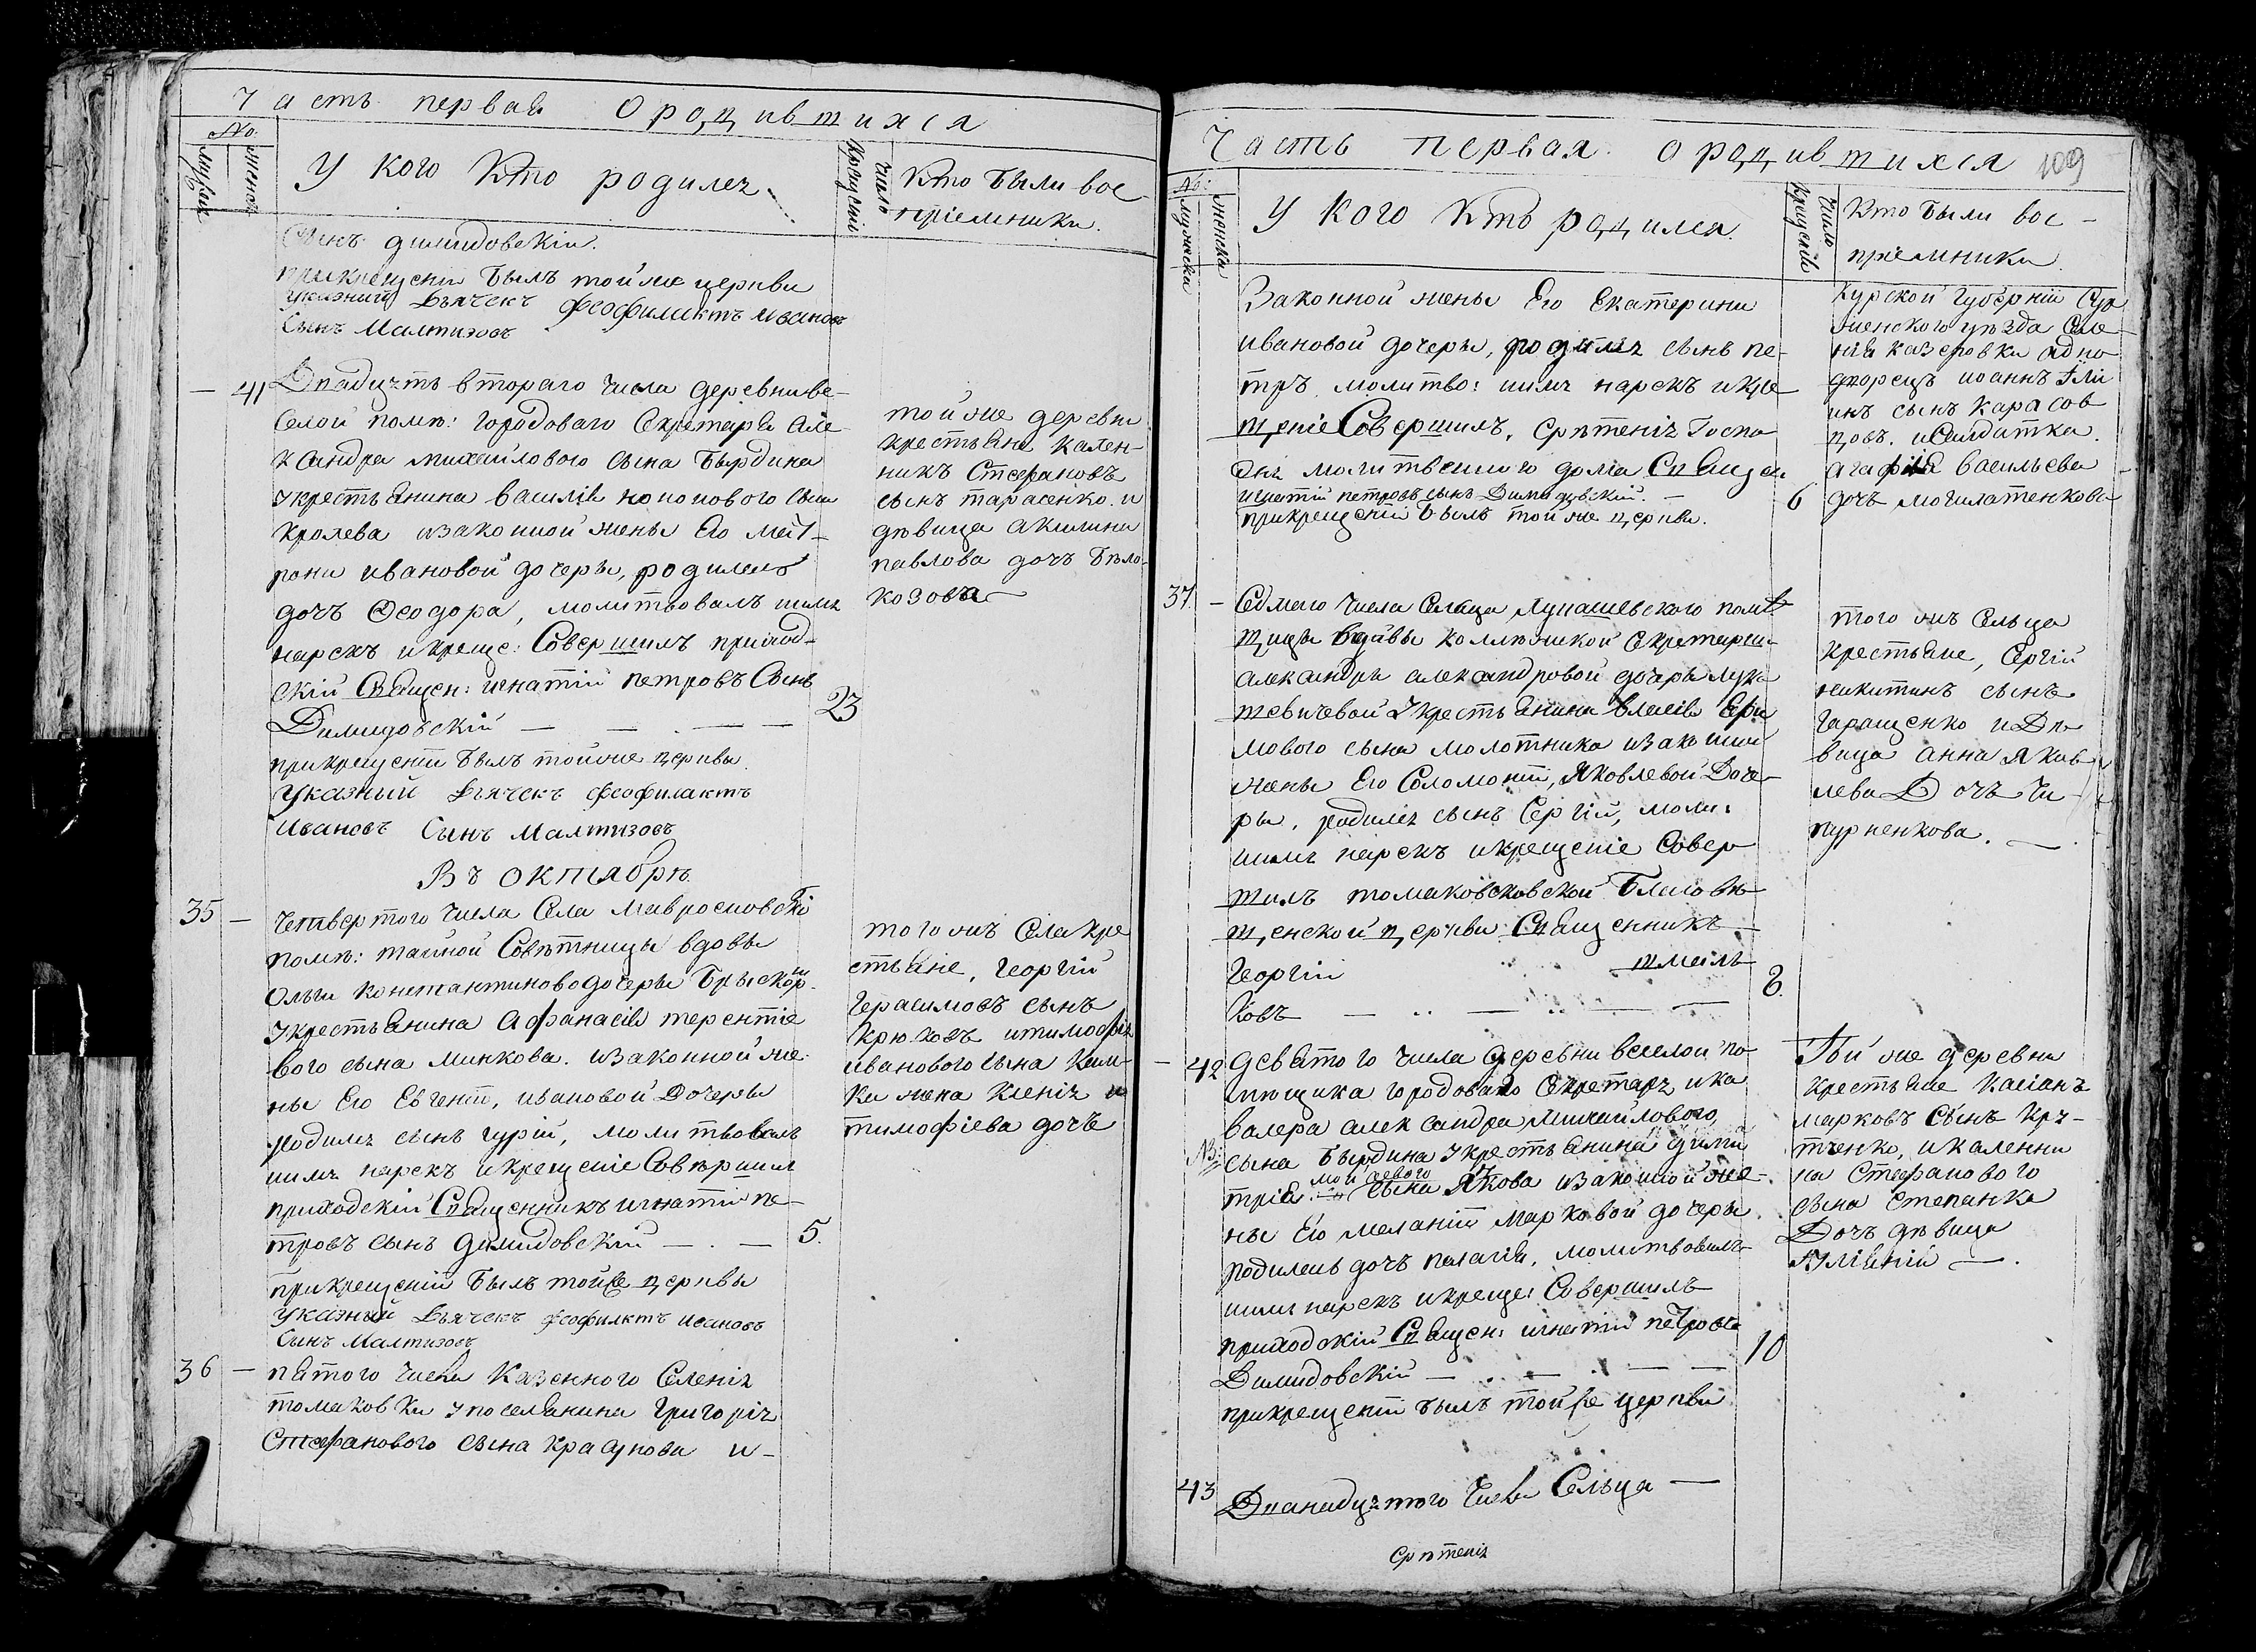 Часть первая О родившихся
No.
мужск
женск
У кого Кто родился
Число Крещенія
Кто были вос-
пріемники.
Сынъ Димидовскій.
прикрещеніи былъ тойже церкви
Указний Дьячекъ Феофилактъ Ивановъ
Сынъ Малтизовъ
— 41
Двадцять втораго числа деревни Ве-
селой помѣ: городоваго Секретаря Але
ксандра михайлового сына Бырдина
укрестьянина василія кононового сына
Кролева изаконной жены Его мат-
рони ивановой дочеры, родилась
дочъ Феодора, молитвовалъ имя
нарекъ икреще: Совершилъ приход-
скій Священ: игнатій петровъ Сынъ
Димидовскій — — — 23
прикрещеніи былъ тойже церквы
Указный Дьячекъ Феофилактъ
Ивановъ Сынъ Малтизовъ
той же деревни
крестьяне Кален-
никъ Стефановъ
сынъ тарасенко. и
дѣвица акилина
павлова дочъ Бѣло-
козова
Въ октябрѣ
35 —
Четвертого числа Села
помѣ: тайной Совѣтницы вдовы
Ольги константиново дочеры
укрестьянина Афанасія терентіе
вого сына минкова. изаконной же
ны Его Евгеніи, ивановой Дочеры
родился сынъ гурій, молитвовалъ
имя нарекъ икрещеніе Совѣршилъ
приходскій Священникъ игнатій пе-
тровъ сынъ Димидовскій — . — 5.
прикрещеніи былъ тойже церквы
Указный Дьячекъ Феофилактъ Ивановъ
Сынъ Малтизовъ
того жъ Села кре
стьяне, Георгій
Герасимовъ сынъ
Крюковъ итимофѣя
иванового сына
жена Ксенія
тимофіева дочъ
36 —
пятого числа Казенного Селенія
томаковки упоселянина григорія
Стефанового сына краснова и-
Часть первая о родившихся 109
No.
мужеска
женска
У кого Кто родился.
Число Крещеній
Кто были вос-
пріемники.
Законной жены Его Екатерини
ивановой дочеры, родился сынъ пе-
тръ молитво: имя нарекъ икре
щеніе Совершилъ, Срѣтенія Госпо
дня молитвенного дома Священ:
игнатій петровъ сынъ Димидовскій. — 6
прикрещеніи былъ той же церкви.
Курской губерніи Суд
женского уѣзда Селе-
нія казеровки одно
дворецъ иоаннъ Или
инъ сынъ Карасов
цовъ. иСалдатка.
агафія васильева
дочъ могилатенкова
37 —
Седмого числа Селца Лукашевского помѣ
щицы вдовы колѣжской Секретарши
александры александровой дочеры лука
шевичевой укрестьянина власія Ефи
мового сына молотника изаконной
жены Его Соломоніи, Яковлевой Доче-
ры, родился сынъ Сергій, моли:
имя нарекъ икрещеніе Совер
шилъ томаковсковской Благовѣ
щенской церкви Священникъ
Георгій
ковъ — .. — .. — 8.
того жъ Сельца
крестьяне, Сергій
никитинъ сынъ
Гаращенко иДѣ
вица анна Яков
лева Дочъ Чи-
пурненкова. —
— 42
Девятого числа деревни веселой по
мѣщика городоваго Секретаря ика
валера александра Михайлового,
NB: сына Бырдина укрестьянина дими
трія мойсевого сына Якова изаконной же-
ны Его меланіи Марковой дочеры
родилась дочъ пелагія, молитвовалъ
имя нарекъ икреще: Совершилъ
приходскій Священ: игнатій петровъ
Димидовскій — . — . — — 10
прикрещеніи былъ тойже церкви
Той же деревни
крестьяне Касіанъ
марковъ сынъ Кру-
тченко, икаленни
ка Стефанового
сына Степанка
Дочъ дѣвица
Юліянія — .
43
Дванадцятого числа Сельца —
Срѣтенія